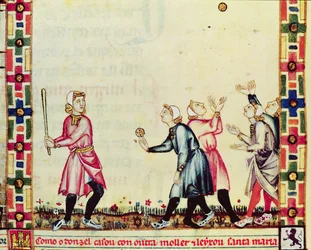 Como o donzel casou con outra moller ⁊ leyxou santa maria